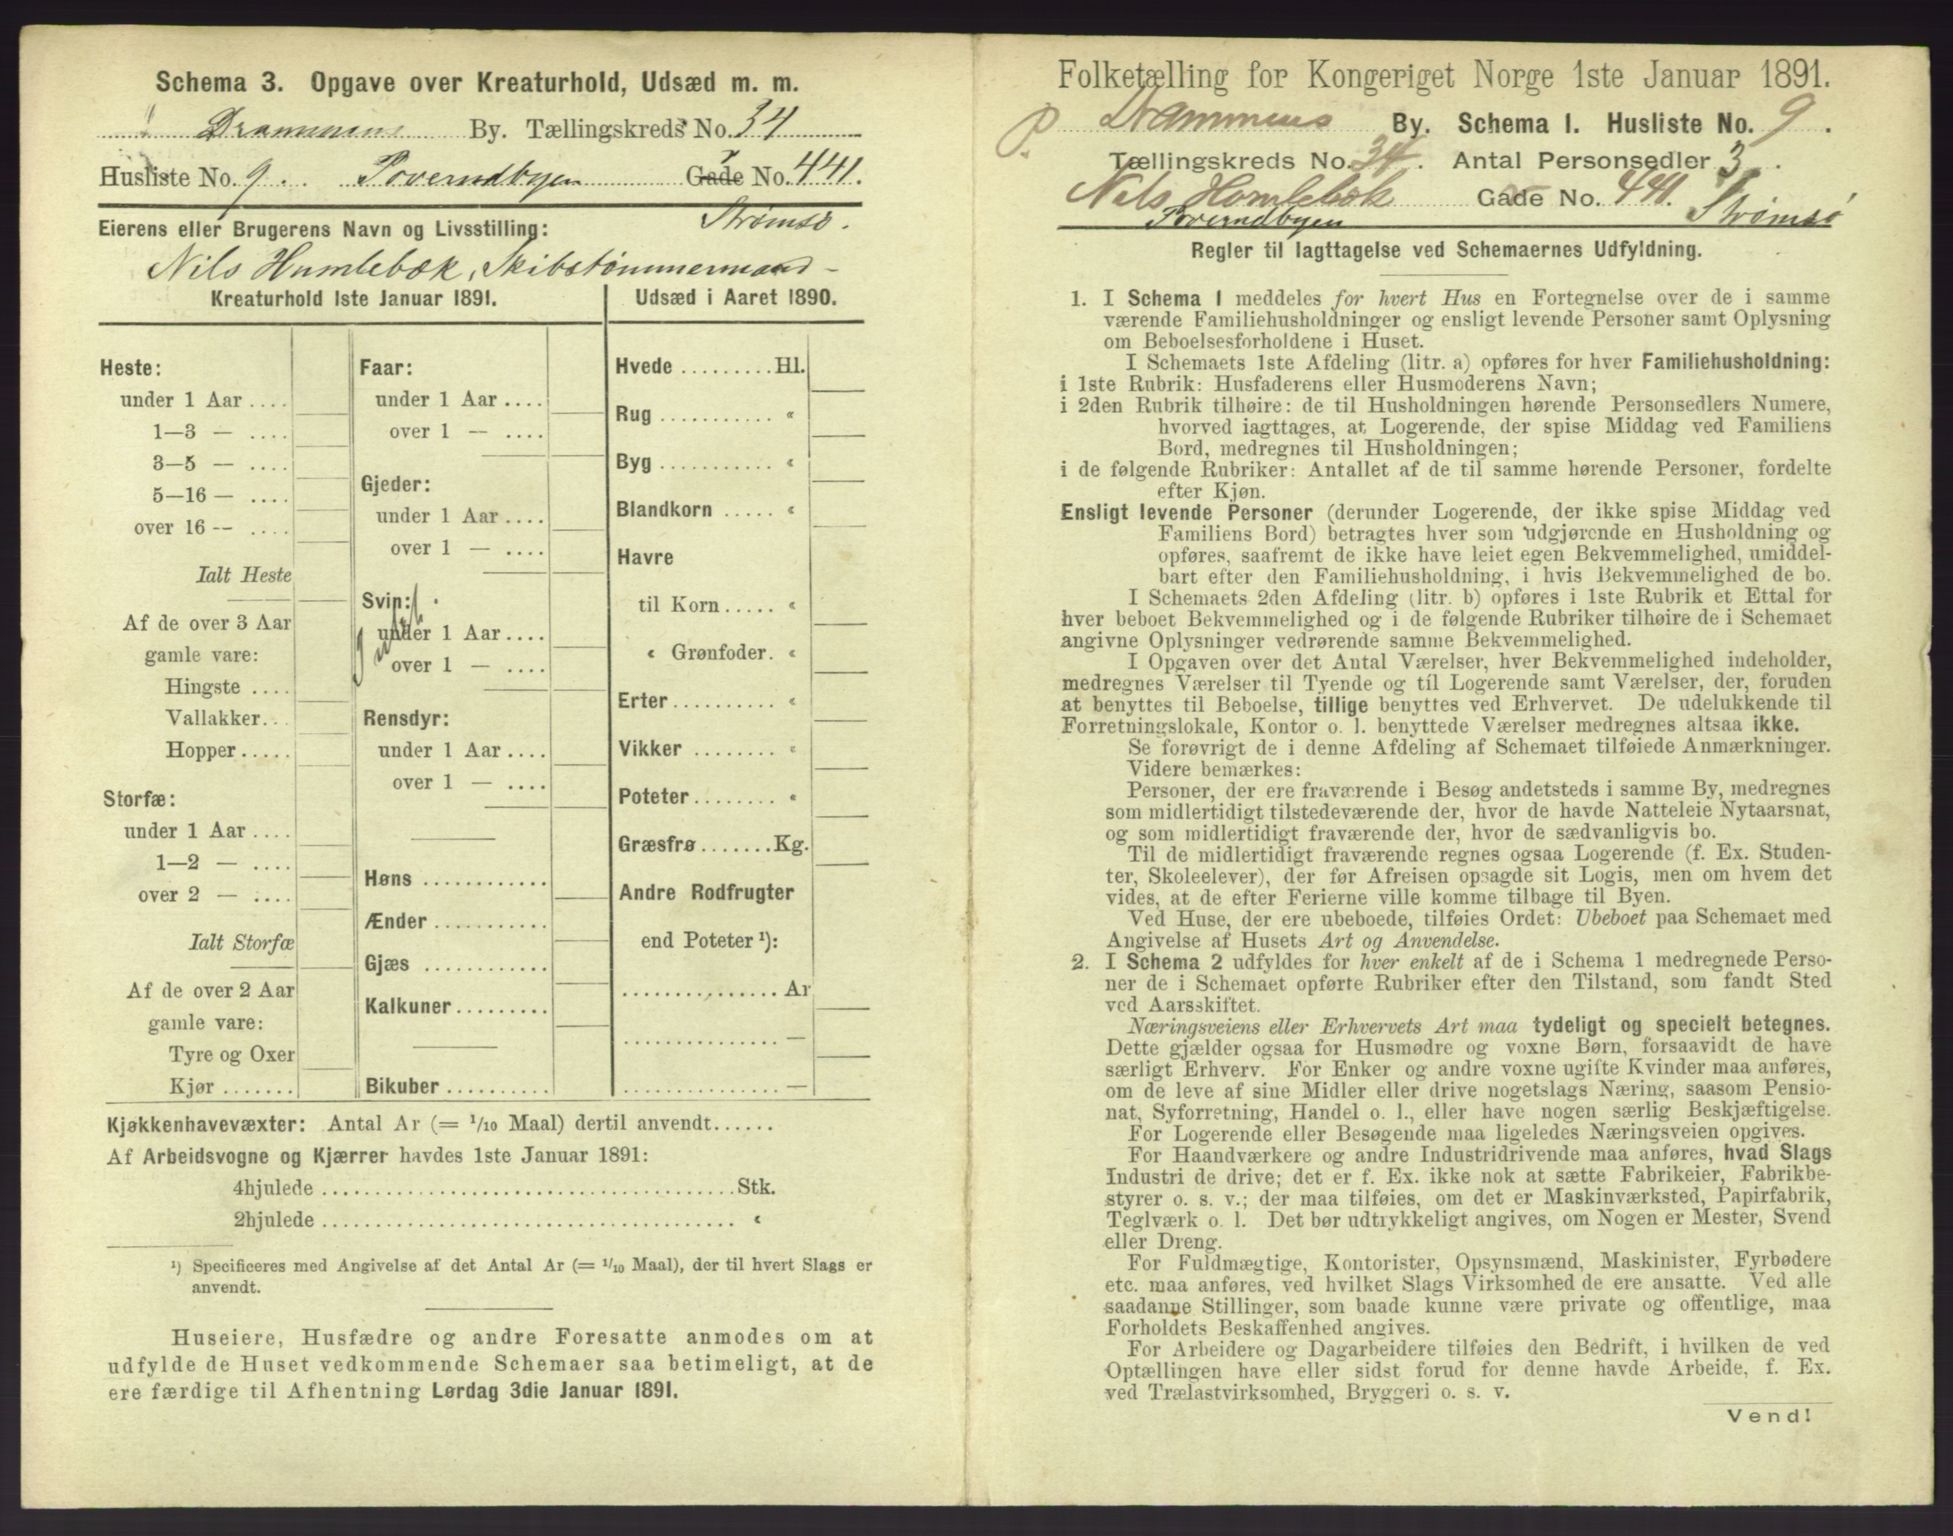 Schema 3. Opgave over Kreaturhold, Udsæd m. m.
Drammens By. Tællingskreds No. 34
Husliste No. 9. Toverudbyen Gade No. 441.
Strømsø.
Eierens eller Brugerens Navn og Livsstilling:
Nils Humlebæk, Skibstømmermand
Kreaturhold 1ste Januar 1891.
Heste:
under 1 Aar ....
1—3 — ....
3—5 — ....
5—16 — ....
over 16 — ....
Ialt Heste
Af de over 3 Aar
gamle vare:
Hingste ....
Vallakker...
Hopper .....
Storfæ:
under 1 Aar ....
1—2 — ....
over 2 — ....
Ialt Storfæ
Af de over 2 Aar
gamle vare:
Tyre og Oxer
Kjør .......
Faar:
under 1 Aar ....
over 1 — ....
Gjeder:
under 1 Aar ....
over 1 — ....
Svin:
under 1 Aar ....
over 1 — ....
Rensdyr:
under 1 Aar ....
over 1 — ....
Høns ............
Ænder ...........
Gjæs ............
Kalkuner .........
Bikuber ..........
Udsæd i Aaret 1890.
Hvede ......... Hl.
Rug ........... «
Byg ........... «
Blandkorn ..... «
Havre
til Korn ..... «
« Grønfoder. «
Erter .......... «
Vikker ........ «
Poteter ........ «
Græsfrø ....... Kg.
Andre Rodfrugter
end Poteter ¹):
................ Ar
................ —
................ —
Kjøkkenhavevæxter: Antal Ar (= 1/10 Maal) dertil anvendt ......
Af Arbeidsvogne og Kjærrer havdes 1ste Januar 1891:
4hjulede ........................................ Stk.
2hjulede ........................................ «
¹) Specificeres med Angivelse af det Antal Ar (= 1/10 Maal), der til hvert Slags er
anvendt.
Huseiere, Husfædre og andre Foresatte anmodes om at
udfylde de Huset vedkommende Schemaer saa betimeligt, at de
ere færdige til Afhentning Lørdag 3die Januar 1891.
Folketælling for Kongeriget Norge 1ste Januar 1891.
P. Drammens By. Schema 1. Husliste No. 9.
Tællingskreds No. 34. Antal Personsedler 3.
Nils Homlebæk Gade No. 441.
Toverudbyen Strømsø
Regler til Iagttagelse ved Schemaernes Udfyldning.
1. I Schema 1 meddeles for hvert Hus en Fortegnelse over de i samme
værende Familiehusholdninger og ensligt levende Personer samt Oplysning
om Beboelsesforholdene i Huset.
I Schemaets 1ste Afdeling (litr. a) opføres for hver Familiehusholdning:
i 1ste Rubrik: Husfaderens eller Husmoderens Navn;
i 2den Rubrik tilhøire: de til Husholdningen hørende Personsedlers Numere,
hvorved iagttages, at Logerende, der spise Middag ved Familiens
Bord, medregnes til Husholdningen;
i de følgende Rubriker: Antallet af de til samme hørende Personer, fordelte
efter Kjøn.
Ensligt levende Personer (derunder Logerende, der ikke spise Middag ved
Familiens Bord) betragtes hver som udgjørende en Husholdning og
opføres, saafremt de ikke have leiet egen Bekvemmelighed, umiddel-
bart efter den Familiehusholdning, i hvis Bekvemmelighed de bo.
I Schemaets 2den Afdeling (litr. b) opføres i 1ste Rubrik et Ettal for
hver beboet Bekvemmelighed og i de følgende Rubriker tilhøire de i Schemaet
angivne Oplysninger vedrørende samme Bekvemmelighed.
I Opgaven over det Antal Værelser, hver Bekvemmelighed indeholder,
medregnes Værelser til Tyende og til Logerende samt Værelser, der, foruden
at benyttes til Beboelse, tillige benyttes ved Erhvervet. De udelukkende til
Forretningslokale, Kontor o. l. benyttede Værelser medregnes altsaa ikke.
Se forøvrigt de i denne Afdeling af Schemaet tilføiede Anmærkninger.
Videre bemærkes:
Personer, der ere fraværende i Besøg andetsteds i samme By, medregnes
som midlertidigt tilstedeværende der, hvor de havde Natteleie Nytaarsnat,
og som midlertidigt fraværende der, hvor de sædvanligvis bo.
Til de midlertidigt fraværende regnes ogsaa Logerende (f. Ex. Studen-
ter, Skoleelever), der før Afreisen opsagde sit Logis, men om hvem det
vides, at de efter Ferierne ville komme tilbage til Byen.
Ved Huse, der ere ubeboede, tilføies Ordet: Ubeboet paa Schemaet med
Angivelse af Husets Art og Anvendelse.
2. I Schema 2 udfyldes for hver enkelt af de i Schema 1 medregnede Perso-
ner de i Schemaet opførte Rubriker efter den Tilstand, som fandt Sted
ved Aarsskiftet.
Næringsveiens eller Erhvervets Art maa tydeligt og specielt betegnes.
Dette gjælder ogsaa for Husmødre og voxne Børn, forsaavidt de have
særligt Erhverv. For Enker og andre voxne ugifte Kvinder maa anføres,
om de leve af sine Midler eller drive nogetslags Næring, saasom Pensio-
nat, Syforretning, Handel o. l., eller have nogen særlig Beskjæftigelse.
For Logerende eller Besøgende maa ligeledes Næringsveien opgives.
For Haandværkere og andre Industridrivende maa anføres, hvad Slags
Industri de drive; det er f. Ex. ikke nok at sætte Fabrikeier, Fabrikbe-
styrer o. s. v.; der maa tilføies, om det er Maskinværksted, Papirfabrik,
Teglværk o. l. Det bør udtrykkeligt angives, om Nogen er Mester, Svend
eller Dreng.
For Fuldmægtige, Kontorister, Opsynsmænd, Maskinister, Fyrbødere
etc. maa anføres, ved hvilket Slags Virksomhed de ere ansatte. Ved alle
saadanne Stillinger, som baade kunne være private og offentlige, maa
Forholdets Beskaffenhed angives.
For Arbeidere og Dagarbeidere tilføies den Bedrift, i hvilken de ved
Optællingen have eller sidst forud for denne havde Arbeide, f. Ex.
ved Trælastvirksomhed, Bryggeri o. s. v.
Vend!